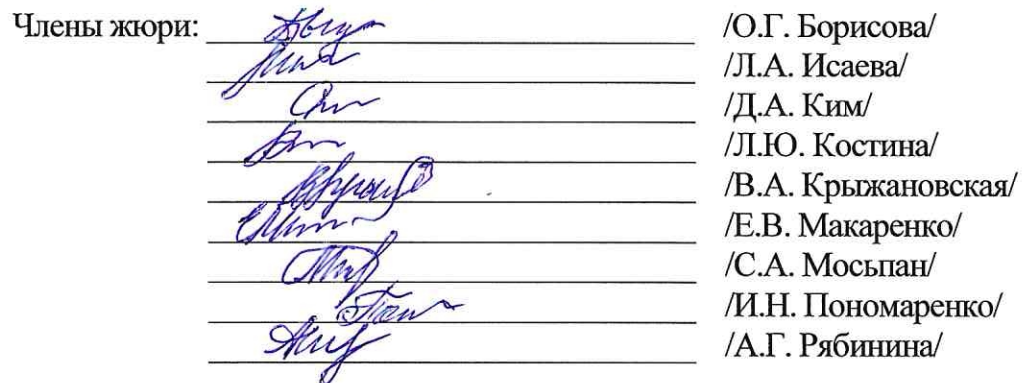 Члены жюри: /О.Г. Борисова/
/Л.А. Исаева/
/Д.А. Ким/
/Л.Ю. Костина/
/В.А. Крыжановская/
/Е.В. Макаренко/
/С.А. Мосьпан/
/И.Н. Пономаренко/
/А.Г. Рябинина/